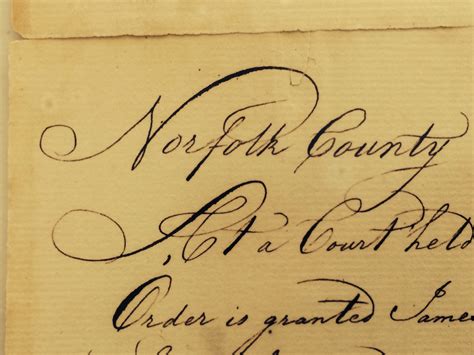 Norfolk County
At a Court held
Order is granted James